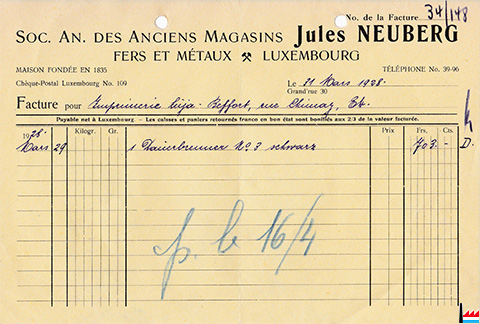 No. de la Facture 34/148
SOC. AN. DES ANCIENS MAGASINS Jules NEUBERG
FERS ET MÉTAUX ⚒ LUXEMBOURG
MAISON FONDÉE EN 1835
TÉLÉPHONE No. 39-96
Chèque-Postal Luxembourg No. 109
Le 31 Mars 1928.
Grand'rue 30
Facture pour Imprimerie Beffort, rue Chimay,
Payable net à Luxembourg. — Les caisses et paniers retournés franco en bon état sont bonifiés aux 2/3 de la valeur facturée.
1928. Kilogr. Gr. Prix Frs. Cts.
Mars 29 1 Dauerbrenner No. 3 schwarz 703.- D.
p. le 16/4